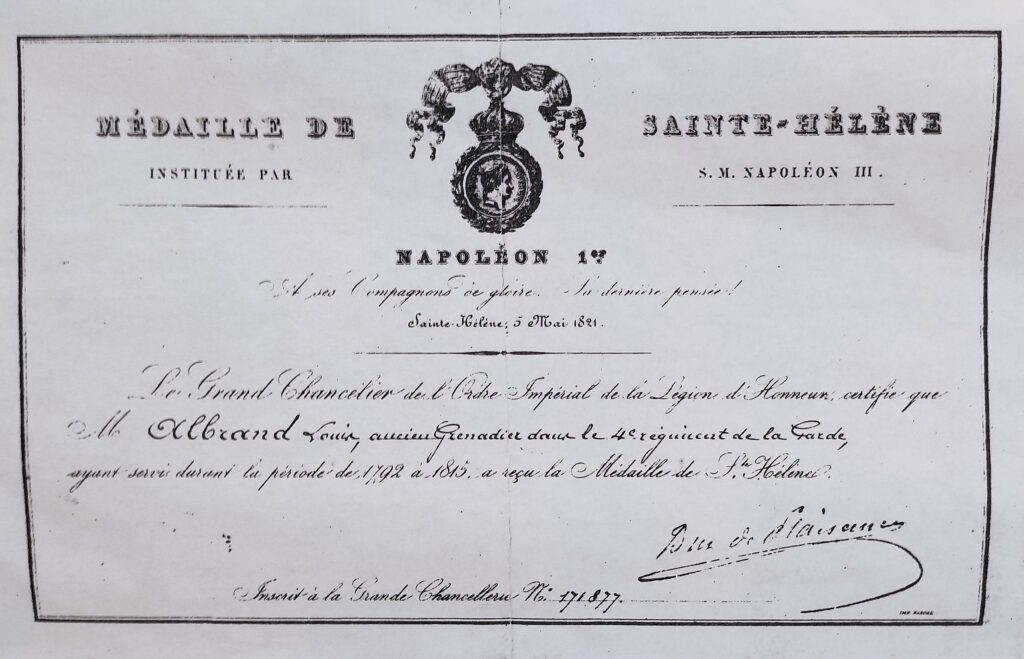 MÉDAILLE DE SAINTE-HÉLÈNE
INSTITUÉE PAR S. M. NAPOLÉON III.
NAPOLÉON 1er
A ses Compagnons de gloire. Sa dernière pensée!
Sainte-Hélène, 5 Mai 1821.
Le Grand Chancelier de l'Ordre Impérial de la Légion d'Honneur, certifie que
M Albrand Louis, ancien Grenadier dans le 4e régiment de la Garde,
ayant servi durant la période de 1792 à 1815, a reçu la Médaille de Ste Hélène.
Duc de Plaisance
Inscrit à la Grande Chancellerie No 171.877.